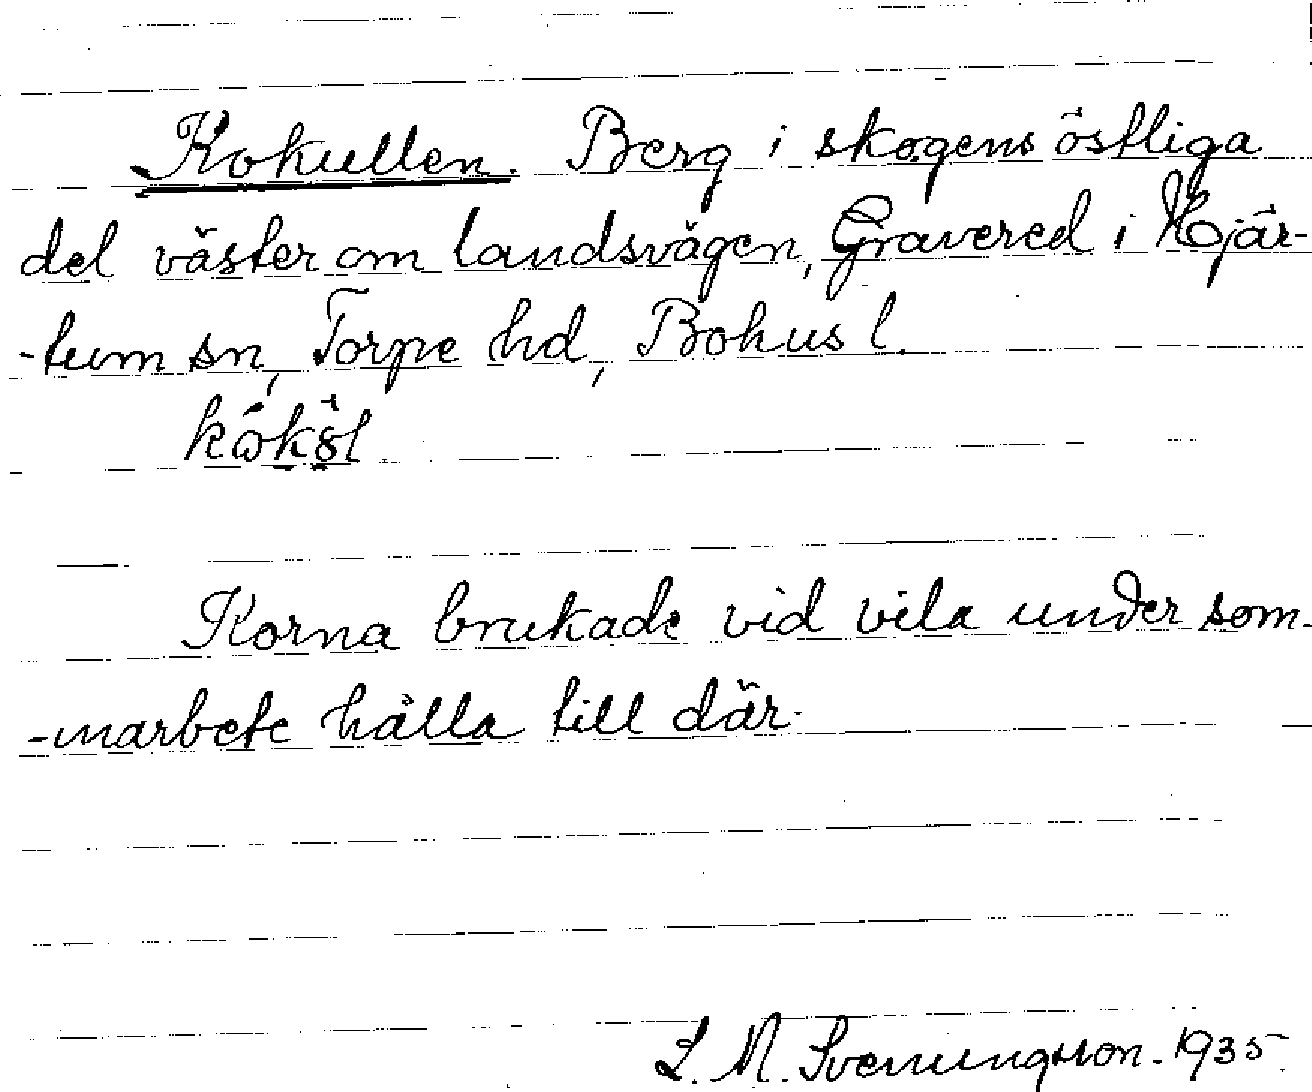 Kokullen. Berg i skogens östliga
del väster om landsvägen, Gravered i Hjär-
-tum sn, Torpe hd, Bohus l.
Korna brukade vid vila under som-
-marbete hålla till där.
L. M. Svenungsson. 1935.